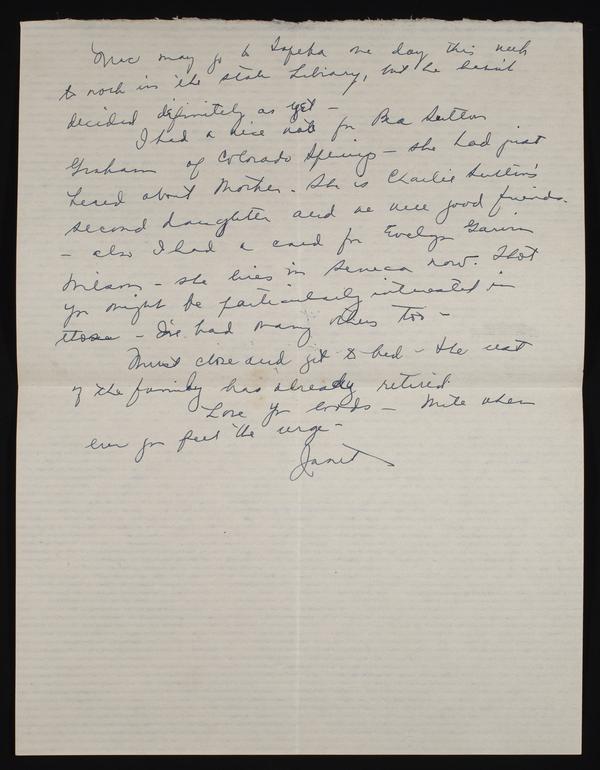 may go to Topeka one day this week
to work in the state Library, but he hasn't
decided definitely as yet -
I had a nice note fr Bea Sutton
Graham of Colorado Springs - she had just
heard about Mother. She is Charlie Sutton's
second daughter and we were good friends.
- also I had a card fr Evelyn Garvin
Wilson - she lives in Seneca now. Thot
yo might be particularly interested in
those - I've had many others too -
Must close and get to bed - the rest
of the family has already retired.
Love yo loads - Write when
ever yo feel the urge -
Janet